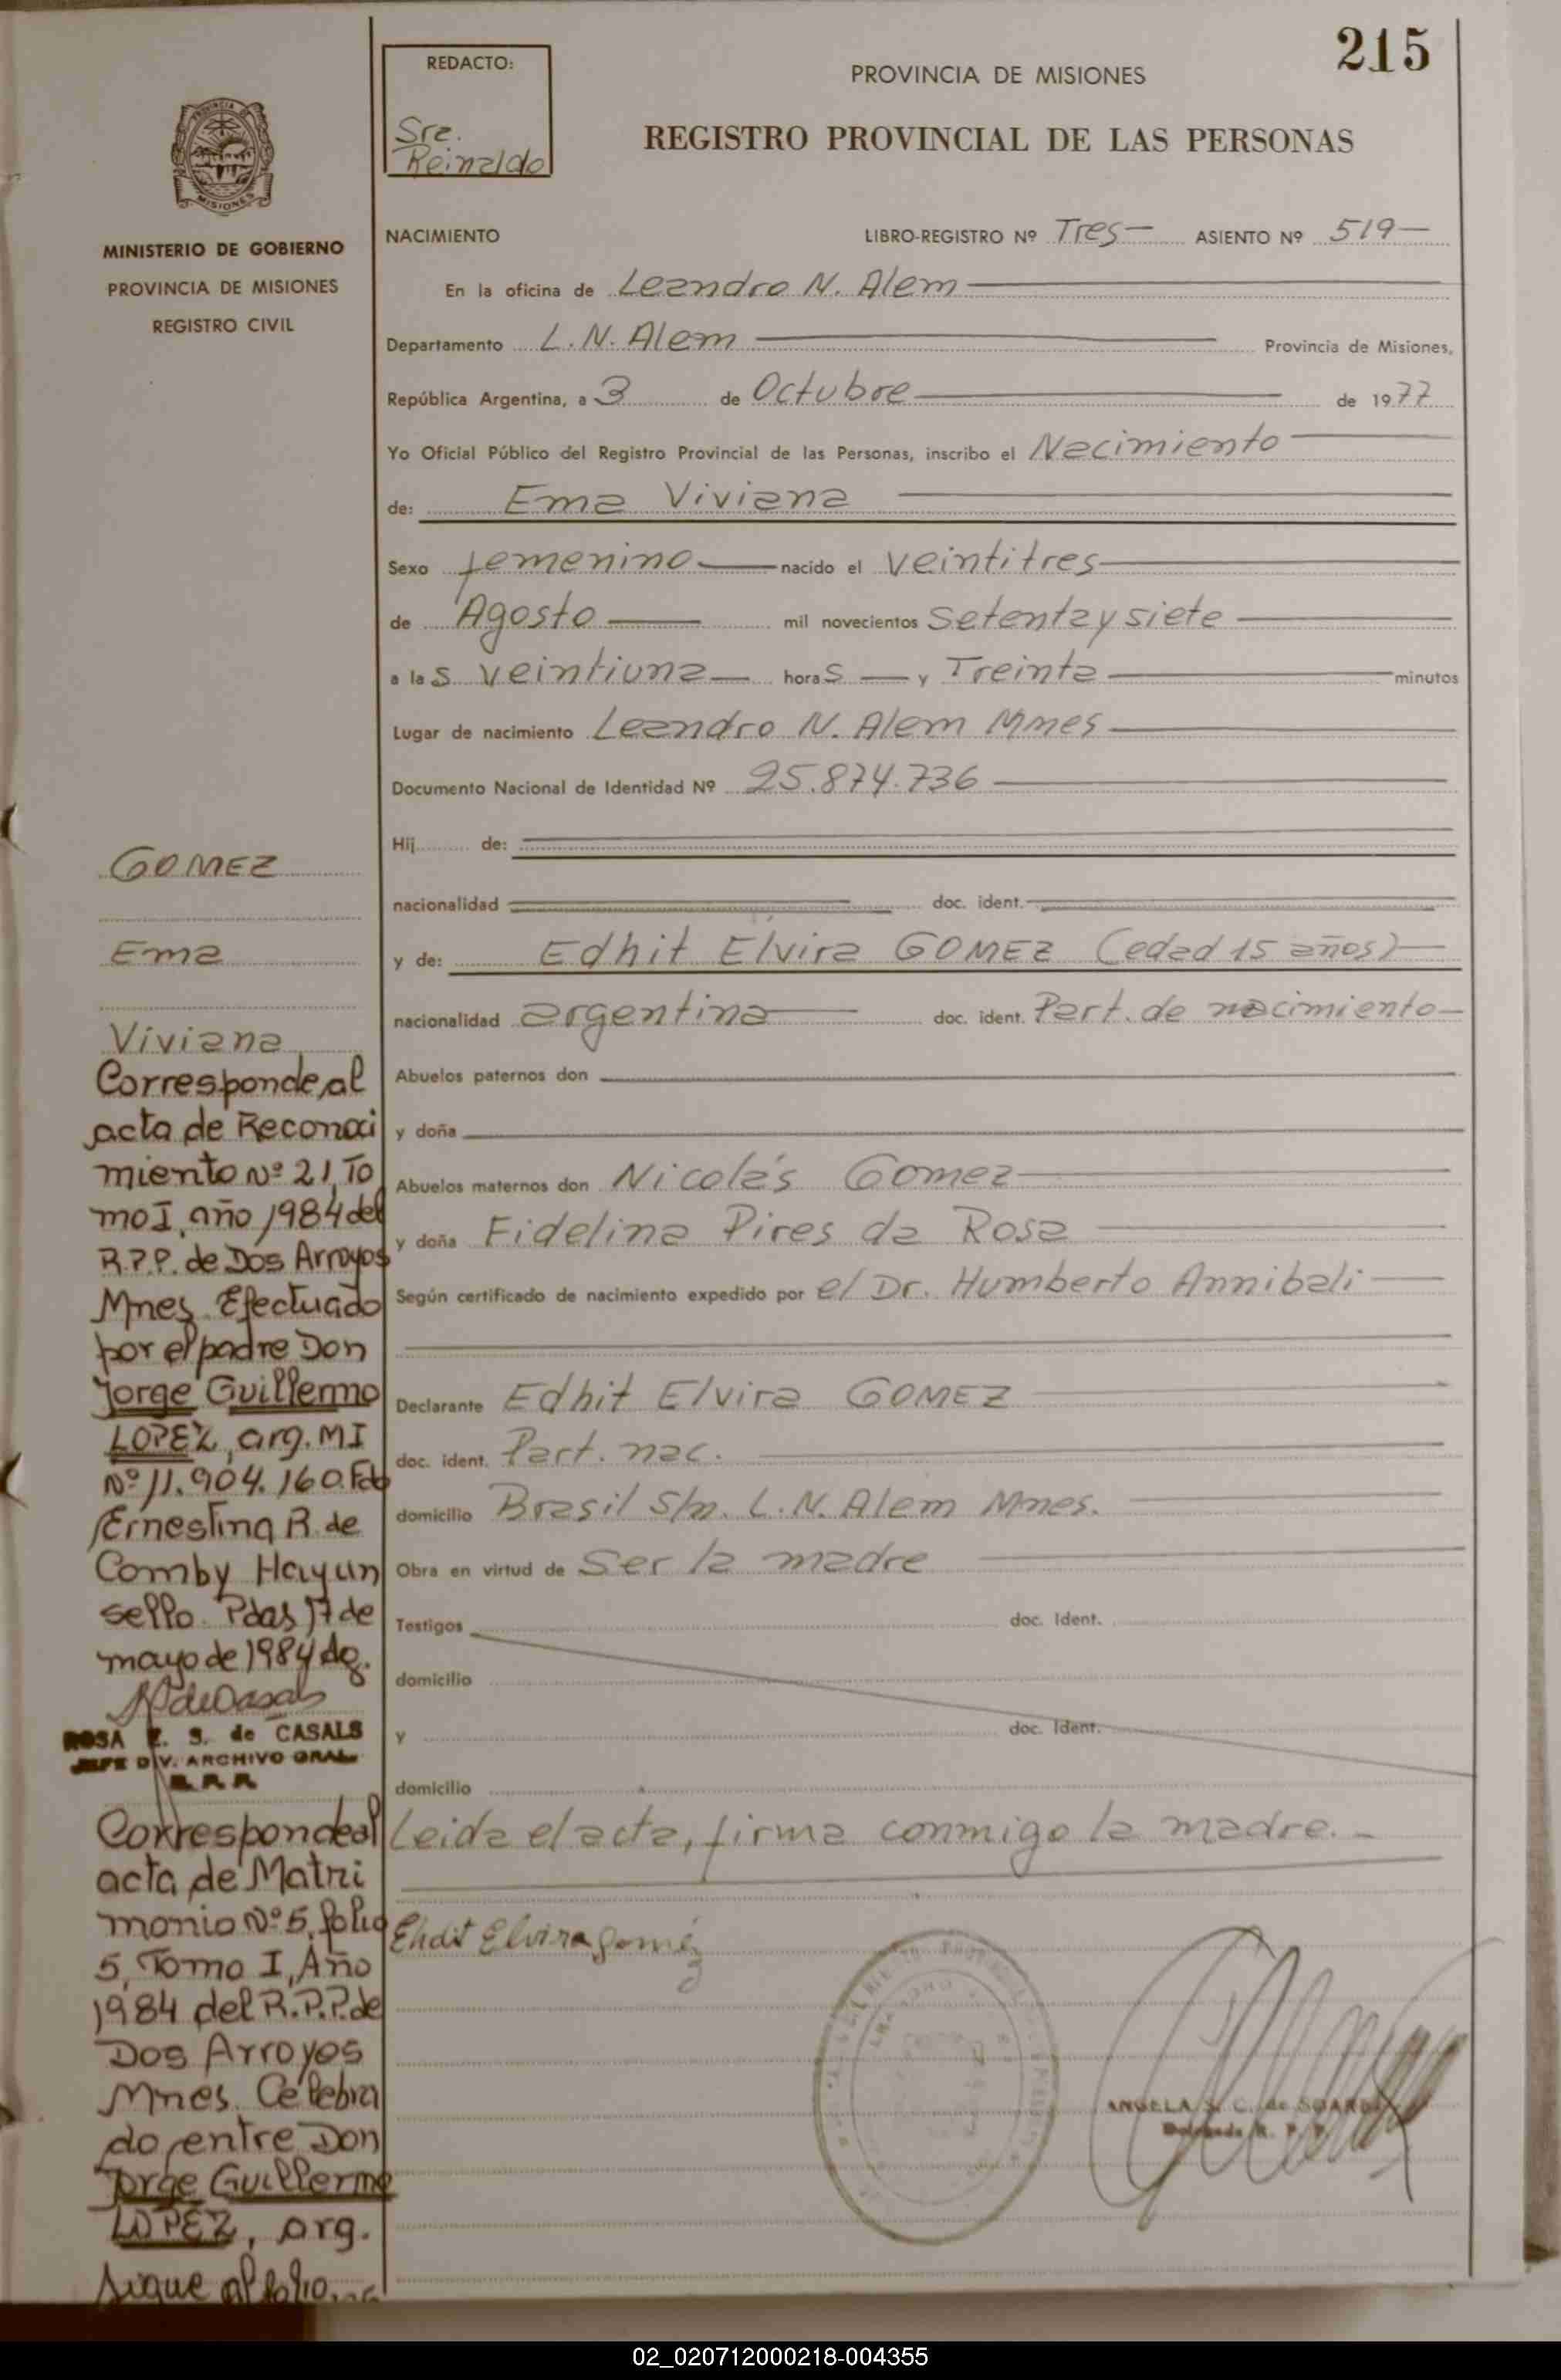 215
REDACTO:
Sre.
Reinaldo
PROVINCIA DE MISIONES
REGISTRO PROVINCIAL DE LAS PERSONAS
PROVINCIA
MISIONES
MINISTERIO DE GOBIERNO
PROVINCIA DE MISIONES
REGISTRO CIVIL
NACIMIENTO LIBRO-REGISTRO Nº Tres ASIENTO Nº 519
En la oficina de Leandro N. Alem
Departamento L. N. Alem Provincia de Misiones,
República Argentina, a 3 de Octubre de 1977
Yo Oficial Público del Registro Provincial de las Personas, inscribo el Nacimiento
de: Ema Viviana
Sexo femenino nacido el veintitres
de Agosto mil novecientos setenta y siete
a las veintiuna horas y Treinta minutos
Lugar de nacimiento Leandro N. Alem Mnes
Documento Nacional de Identidad Nº 25.874.736
Hij de:
nacionalidad doc. ident.
y de: Edhit Elvira GOMEZ (edad 15 años)
nacionalidad argentina doc. ident. Part. de nacimiento
Abuelos paternos don
y doña
Abuelos maternos don Nicolás Gomez
y doña Fidelina Pires da Rosa
Según certificado de nacimiento expedido por el Dr. Humberto Annibali
Declarante Edhit Elvira GOMEZ
doc. ident. Part. nac.
domicilio Brasil s/n. L. N. Alem Mnes.
Obra en virtud de Ser la madre
Testigos doc. Ident.
domicilio
y doc. Ident.
domicilio
Leida el acta, firma conmigo la madre.-
Ehdit Elvira gomez
ANGELA S. C. de SOAREZ
Delegada R. P. P.
GOMEZ
Ema
Viviana
Corresponde al
acta de Reconoci
miento Nº 21, To
mo I, año 1984 del
R.P.P. de Dos Arroyos
Mnes. Efectuado
por el padre Don
Jorge Guillermo
LOPEZ, arg. MI
Nº 11.904.160. Fdo
Ernestina R. de
Comby Hay un
sello. Pdas 17 de
mayo de 1984 dg.
ROSA E. S. de CASALS
JEFE DIV. ARCHIVO GRAL.
R. P. P.
Corresponde al
acta de Matri
monio Nº 5, folio
5, Tomo I, Año
1984 del R.P.P. de
Dos Arroyos
Mnes. Celebra
do entre Don
Jorge Guillermo
LOPEZ, arg.
Sigue al folio
02_020712000218-004355